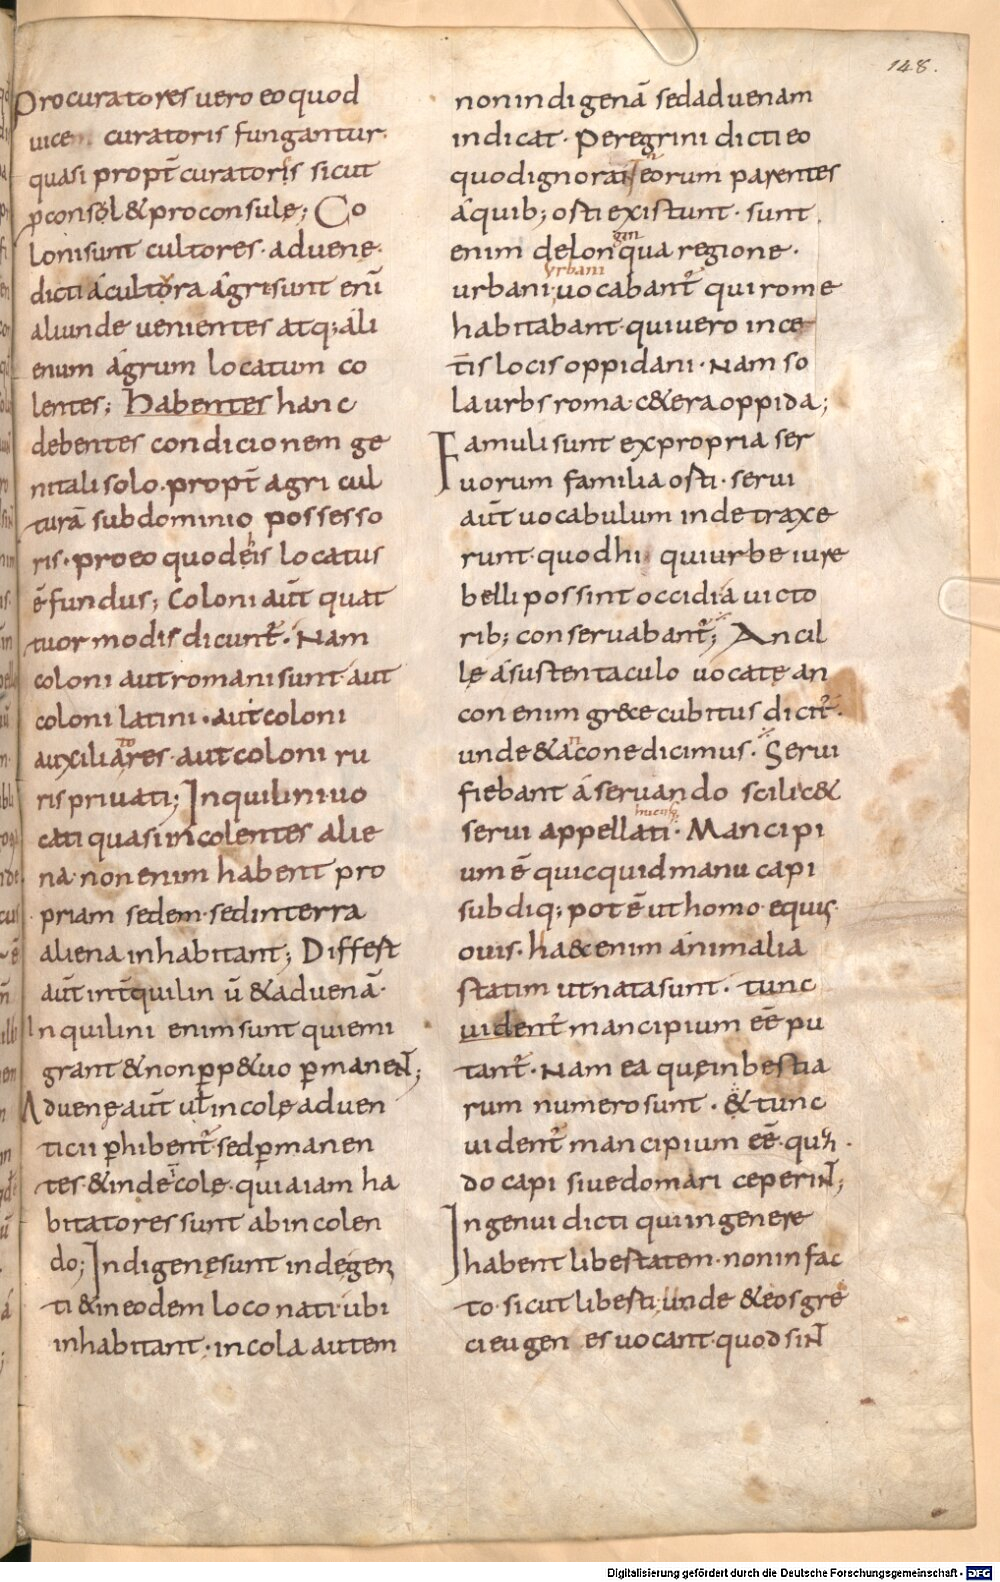 148.
Procuratores uero eo quod
uicem curatoris fungantur.
quasi propt̄ curatoris sicut
p̱consol & proconsule; Co
loni sunt cultores. aduene.
dicti ácultora ágri sunt eni̅
aliunde uenientes atq; áli
enum ágrum locatum co
lentes; Habentes hanc
debentes condicionem ge
nitali solo. propt̄ agri cul
turā sub dominio possesso
ris. pro eo quod eis locatus
ē fundus; Coloni aut̄ quat
tuor modis dicunt̄. Nam
coloni aut romani sunt aut
coloni latini. aut coloni
auxiliares. aut coloni ru
ris priuati; Inquilini uo
cati quasi incolentes alie
na. non enim habent pro
priam sedem. sed in terra
aliena inhabitant; Differt
aut̄ int̄ quilin ū & aduenā.
Inquilini enim sunt qui emi
grant & non p̱p&uo p̱maneNT;
Aduenę aut̄ ut̄ incolę aduen
ticii p̱hibent̄ sed p̱manen
tes & inde īcolę. quia iam ha
bitatores sunt ab incolen
do; Indigenę sunt inde gen
ti & in eodem loco nati ubi
inhabitant. incola autem
non indigenā sed aduenam
indicat. Peregrini dicti eo
quod ignorant eorum parentes
á quib; orti existunt. sunt
gin
enim de lonqua regione.
Vrbani
urbani uocabant̄ qui rome
habitabant. qui uero in ce
t̄is locis oppidani. Nam so
la urbs roma. c&era oppida;
Famuli sunt ex propria ser
uorum familia orti. serui
aut̄ uocabulum inde traxe
runt. quod hi qui urbe iure
belli possint occidi á uicto
rib; conseruabant̄; Ancil
lę á sustentaculo uocatę an
con enim gr&ce cubitus dicit̄.
unde & ancone dicimus. Serui
fiebant á seruando scilic&
serui appellati. Mancipi
um ē quicquid manu capi
subdiq; pot ē ut homo equis
ouis. ha&c enim ánimalia
statim ut nata sunt. tunc
uident̄ mancipium eē pu
tant̄. Nam ea quę in bestia
rum numero sunt. & tunc
uident̄ mancipium eē. quan
do capi siue domari ceperiNT;
Ingenui dicti qui in genere
habent libertatem. non in fac
to. sicut liberti; unde & eos gre
ci eugen es uocant. quod siNT
Digitalisierung gefördert durch die Deutsche Forschungsgemeinschaft - DFG